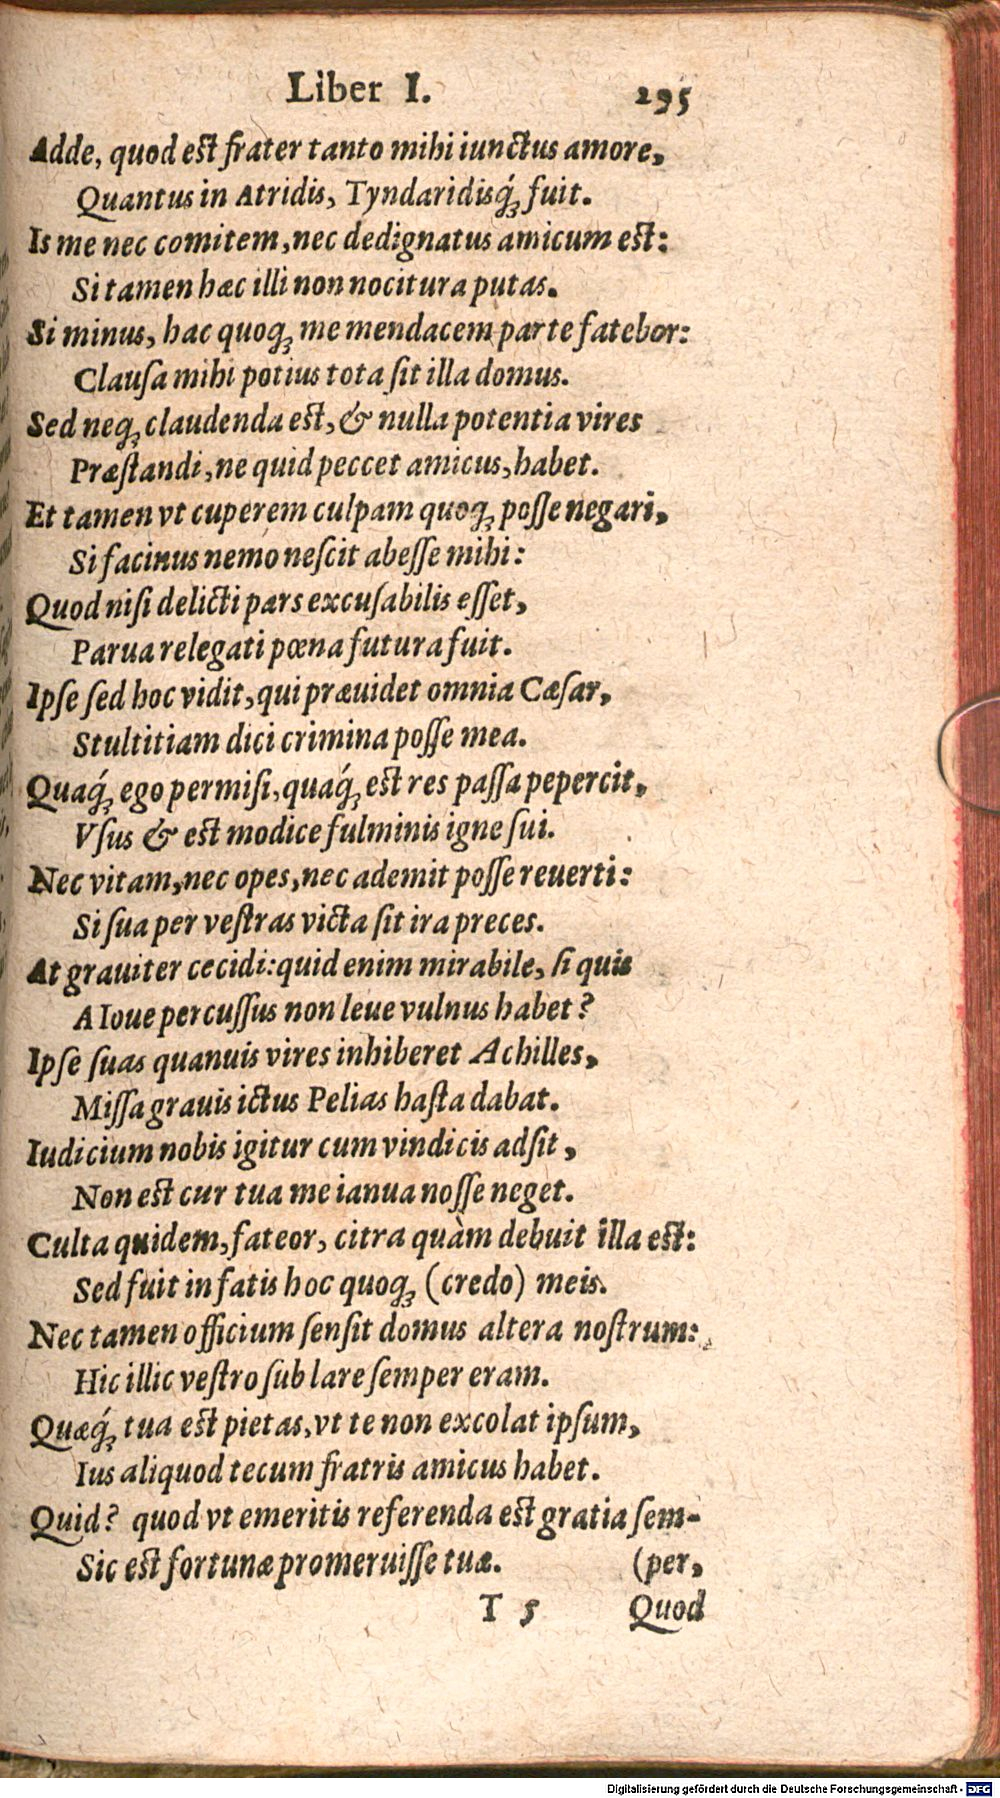 Liber I. 295
Adde, quod est frater tanto mihi iunctus amore,
Quantus in Atridis, Tyndaridisq́ꝫ fuit.
Is me nec comitem, nec dedignatus amicum est:
Si tamen hæc illi non nocitura putas.
Si minus, hac quoqꝫ me mendacem parte fatebor:
Clauſa mihi potius tota ſit illa domus.
Sed neqꝫ claudenda est, & nulla potentia vires
Præſtandi, ne quid peccet amicus, habet.
Et tamen vt cuperem culpam quoqꝫ poſſe negari,
Si facinus nemo neſcit abeſſe mihi:
Quod niſi delicti pars excuſabilis eſſet,
Parua relegati pœna futura fuit.
Ipſe ſed hoc vidit, qui præuidet omnia Cæſar,
Stultitiam dici crimina poſſe mea.
Quaq́ꝫ ego permiſi, quaq́ꝫ est res paſſa pepercit,
Vſus & est modice fulminis igne ſui.
Nec vitam, nec opes, nec ademit poſſe reuerti:
Si ſua per veſtras victa ſit ira preces.
At grauiter cecidi: quid enim mirabile, ſi quis
A Ioue percuſſus non leue vulnus habet?
Ipſe ſuas quanuis vires inhiberet Achilles,
Miſſa grauis ictus Pelias haſta dabat.
Iudicium nobis igitur cum vindicis adſit,
Non est cur tua me ianua noſſe neget.
Culta quidem, fateor, citra quàm debuit illa est:
Sed fuit in fatis hoc quoqꝫ (credo) meis.
Nec tamen officium ſenſit domus altera noſtrum:
Hic illic veſtro ſub lare ſemper eram.
Quæq́ꝫ tua est pietas, vt te non excolat ipſum,
Ius aliquod tecum fratris amicus habet.
Quid? quod vt emeritis referenda est gratia ſem-
Sic est fortunæ promeruiſſe tuæ. (per,
T 5 Quod
Digitalisierung gefördert durch die Deutsche Forschungsgemeinschaft - DFG